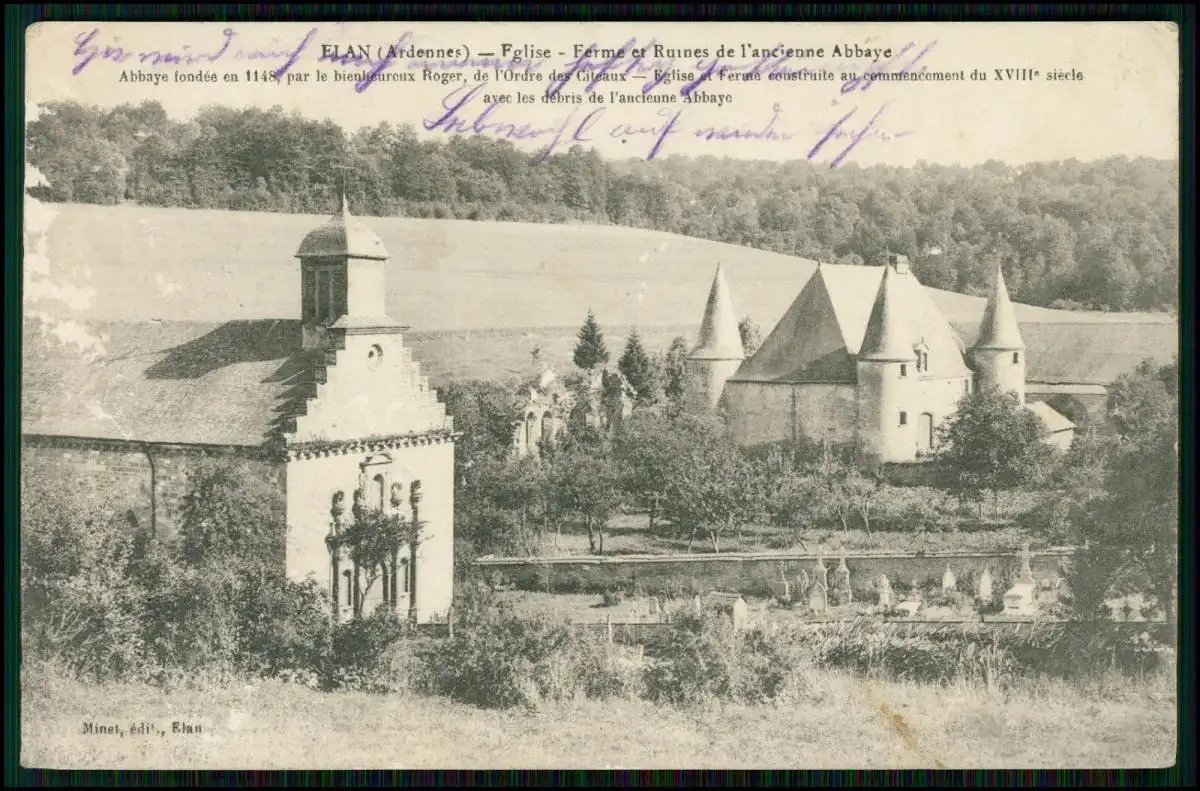 ELAN (Ardennes) — Eglise - Ferme et Ruines de l'ancienne Abbaye
Abbaye fondée en 1148, par le bienheureux Roger, de l'Ordre des Citeaux — Eglise et Ferme construite au commencement du XVIIIe siècle
avec les débris de l'ancienne Abbaye
Hier wird auch
Lebewohl auf
Minet, édit., Elan